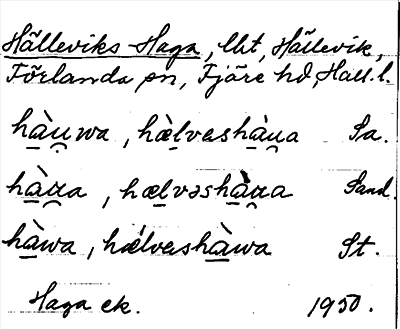 Hälleviks-Haga, lht, Hällevik,
Förlanda sn, Fjäre hd, Hall. l.
hàu̯wa, hælveshàu̯a Sa.
hàu̯a, hælvəshàu̯a Sand.
hàwa, hǽlveshàwa St.
Haga ek. 1950.